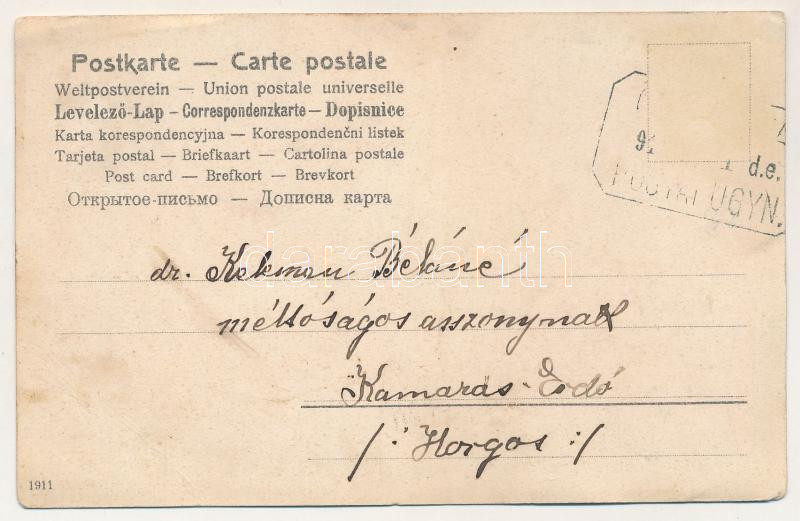 Postkarte — Carte postale
Weltpostverein — Union postale universelle
Levelező-Lap – Correspondenzkarte – Dopisnice
Karta korespondencyjna — Korespondenčni listek
Tarjeta postal — Briefkaart — Cartolina postale
Post card — Brefkort — Brevkort
Открытое-письмо — Дописна карта
d.e.
POSTAI ÜGYN.
darabanth
dr. Kelemen Béláné
méltóságos asszonynak
Kamarás-Erdő
/: Horgos :/
1911